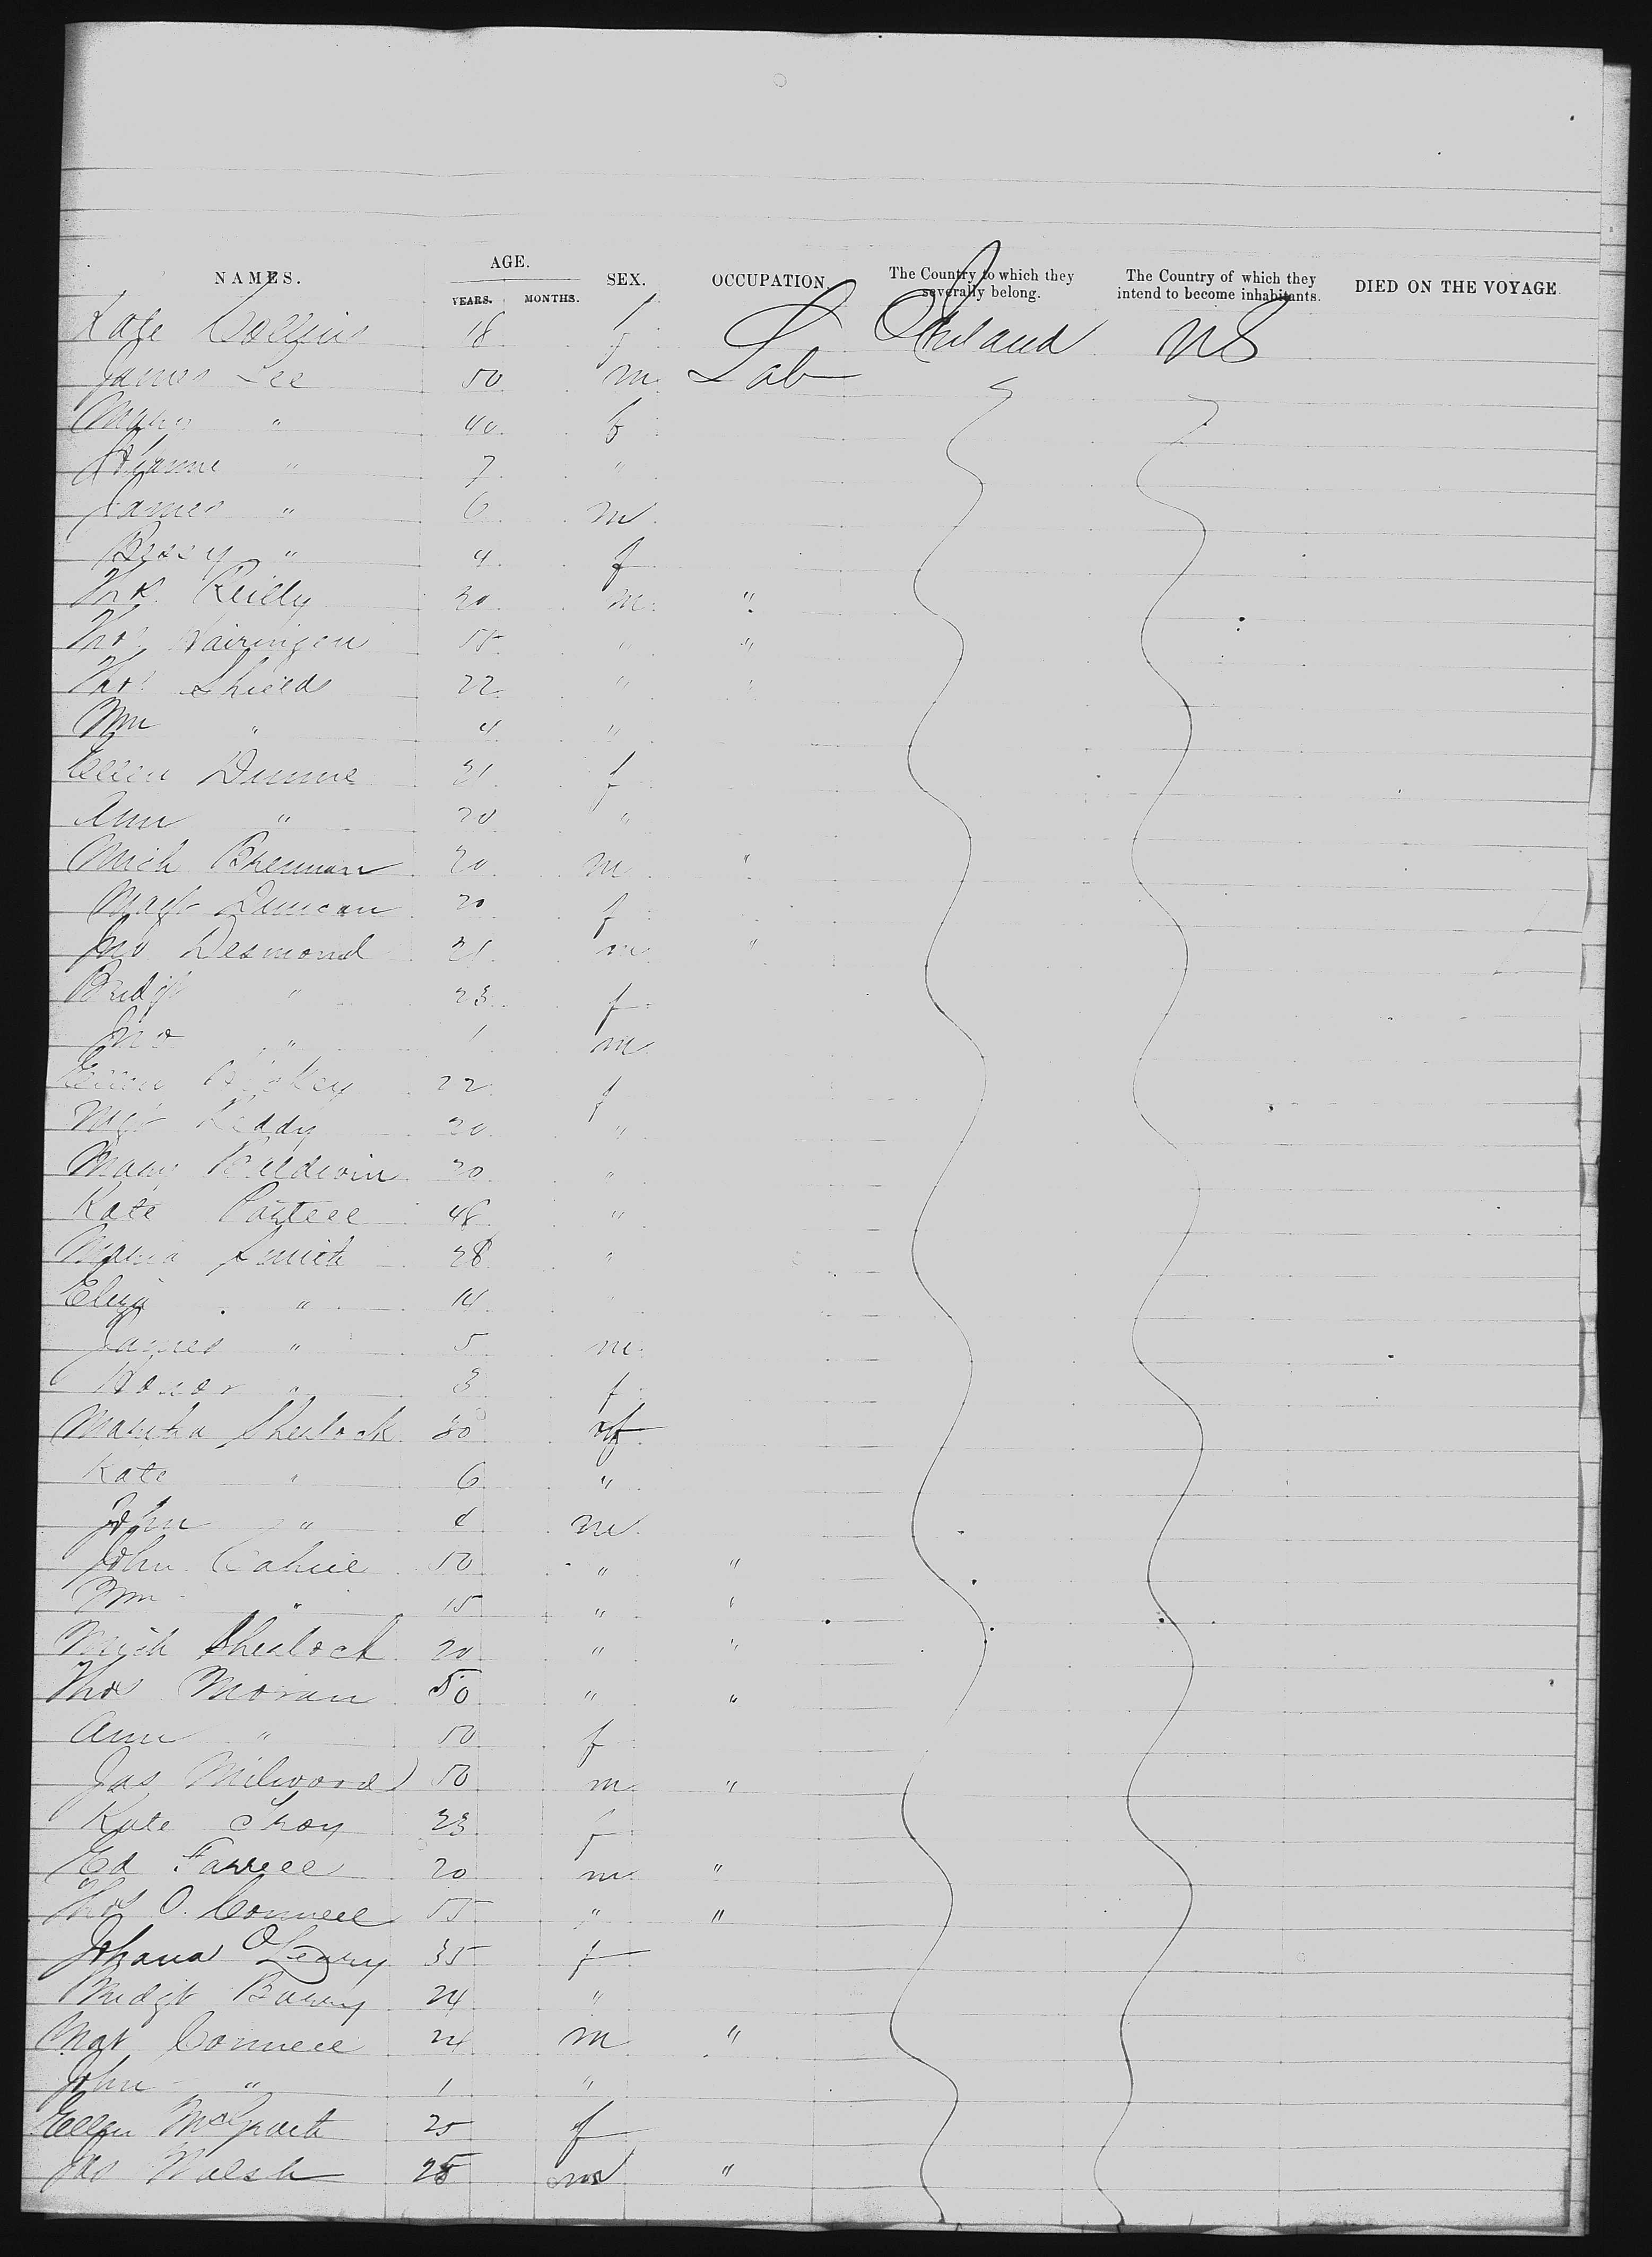 NAMES. AGE. SEX. OCCUPATION. The Country to which they severally belong. The Country of which they intend to become inhabitants. DIED ON THE VOYAGE.
YEARS. MONTHS.
Kate Collins 18 f Ireland US
James Lee 50 m Lab
Mary " 40 f
" 7 "
James " 6 m
Bessy " 4 f
Reilly 20 m "
Thos 55 " "
Thos Shields 22 " "
Wm " 4 "
Ellen Dunne 21 f
Ann " 20 "
Mich Brennan 20 m "
Magt Duncan 20 f
Jno Desmond 21 m "
Bridgt " 23 f
Jno " 1 m
Ellen 22 f
Mgt Leddy 20 "
Mary Baldwin 20 "
Kate 48 "
Maria Smith 28 "
Eliza " 14 "
James " 5 m
Honor " 3 f
Martha Sherlock 30 f
Kate " 6 "
John " 4 m
John Cahill 50 " "
Wm " 15 " "
Mich Sherlock 20 " "
Thos Moran 50 " "
Ann " 50 f
Jas Milward 50 m "
Kate Troy 23 f
Ed Farrell 20 m "
Thos O. Connell 55 " "
Johana O Leary 35 f
Bridgt Barry 24 "
Mat Connell 24 m "
John " 1 "
Ellen 25 f
Jas Walsh 25 m "